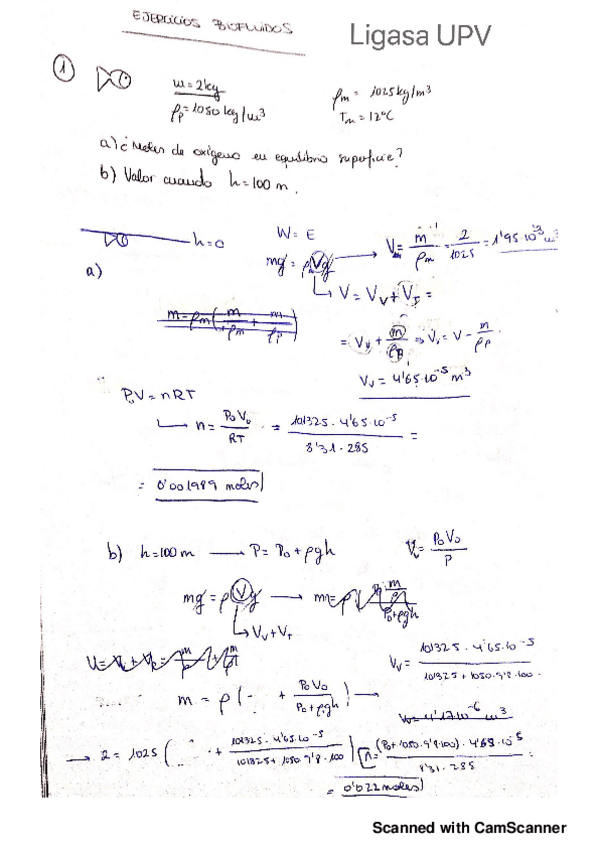 EJERCICIOS BIOFLUIDOS
Ligasa UPV
① m = 2kg ρm = 1025 kg/m³
ρp = 1050 kg/m³ Tm = 12ºC
a) ¿Moles de oxígeno en equilibrio superficie?
b) Valor cuando h = 100 m.
h = 0
W = E
V = m/ρm = 2/1025 = 1'95·10⁻³ m³
a) mg = ρm V g
V = Vv + VT =
m = ρm (m/ρm + m/ρp)
= Vv + m/ρp ⇒ Vv = V - m/ρp
Vv = 4'65·10⁻⁵ m³
P₀V = nRT
n = P₀V₀/RT = 101325 · 4'65·10⁻⁵ / 8'31 · 285 =
= 0'001989 moles
b) h = 100 m → P = P₀ + ρgh
Vv = P₀V₀/P
mg = ρ V g → m = ρ
P₀ + ρgh
Vv + VT
Vv = 101325 · 4'65·10⁻⁵ / 101325 + 1050·9'8·100
m = ρ ( + P₀V₀/P₀+ρgh ) →
Vv = 4'17·10⁻⁶ m³
→ 2 = 1025 ( + 101325 · 4'65·10⁻⁵ / 101325 + 1050·9'8·100 )
n = (P₀ + 1050·9'8·100) · 4'65·10⁻⁵ / 8'31 · 285 =
= 0'022 moles
Scanned with CamScanner